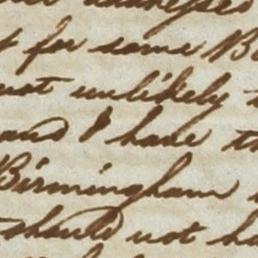 addressed
for some B
not unlikely t
and I have th
Birmingham
should not ha